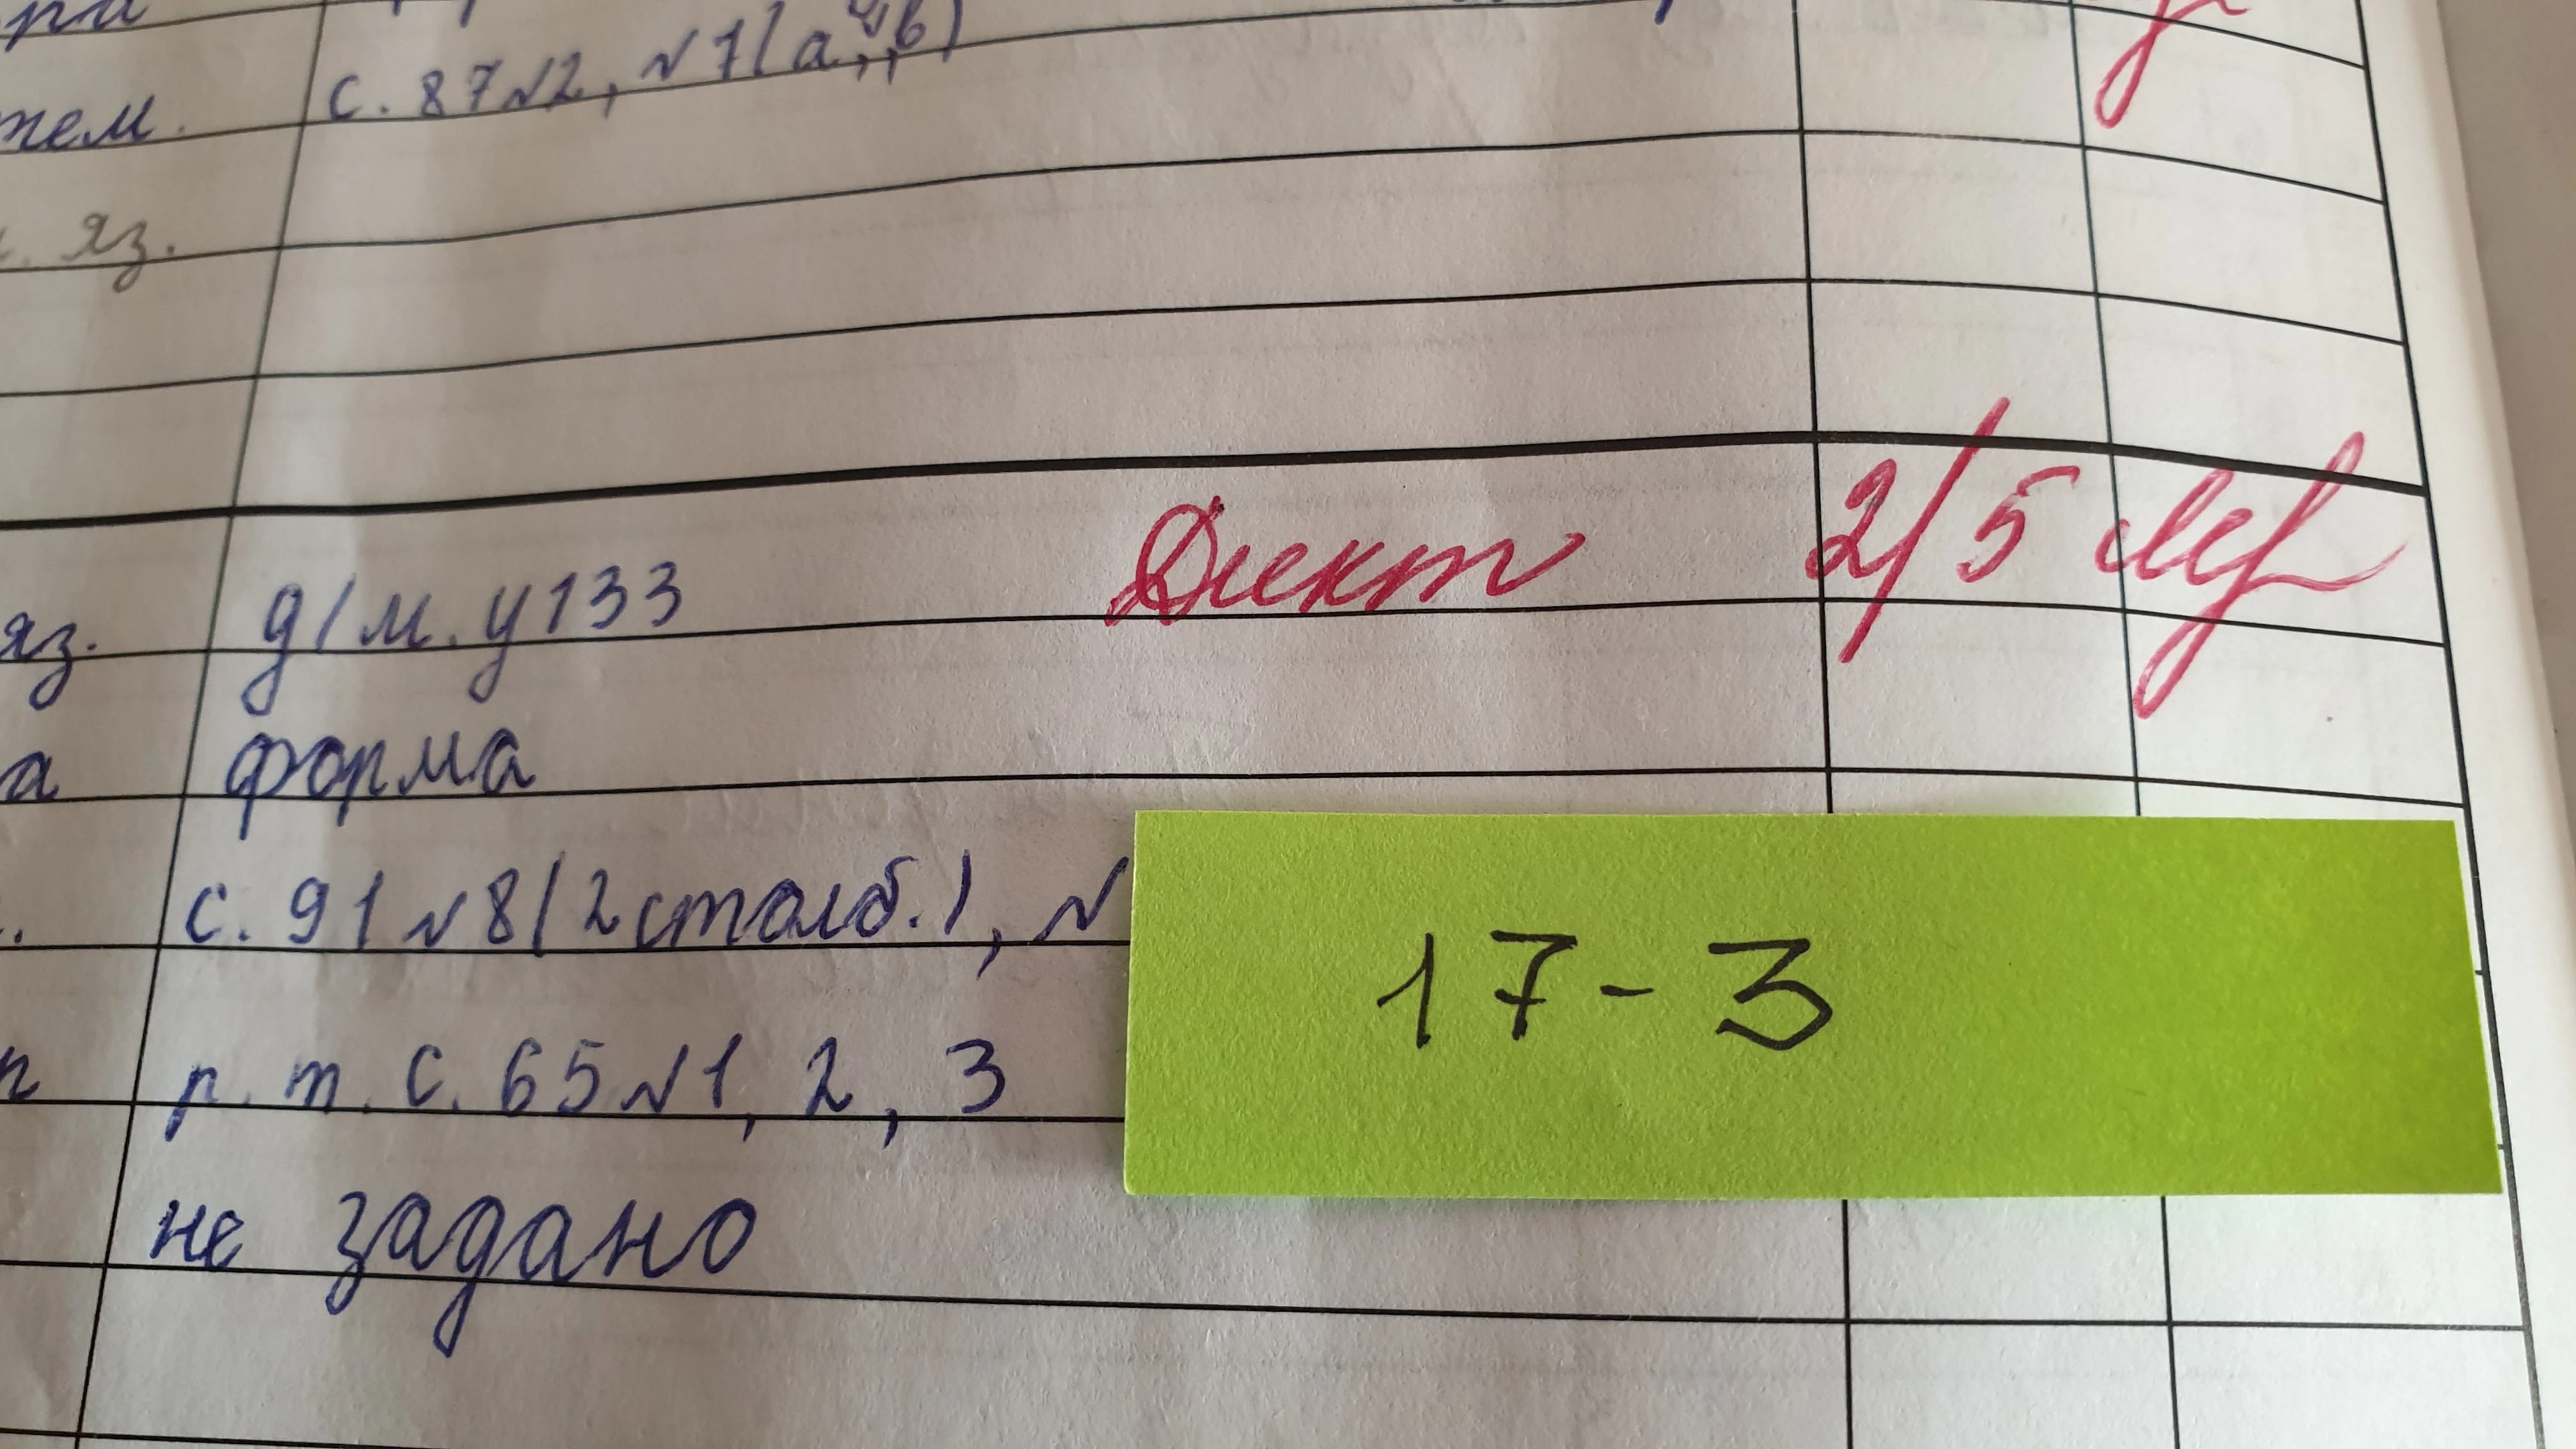 тем. с. 87 №2, №7(а, б, в)
яз.
яз. д/м. у 133 Дикт 2/5
а форма
с. 91 №8(2 столб.), №
р. т. с. 65 №1, 2, 3
17-3
не задано